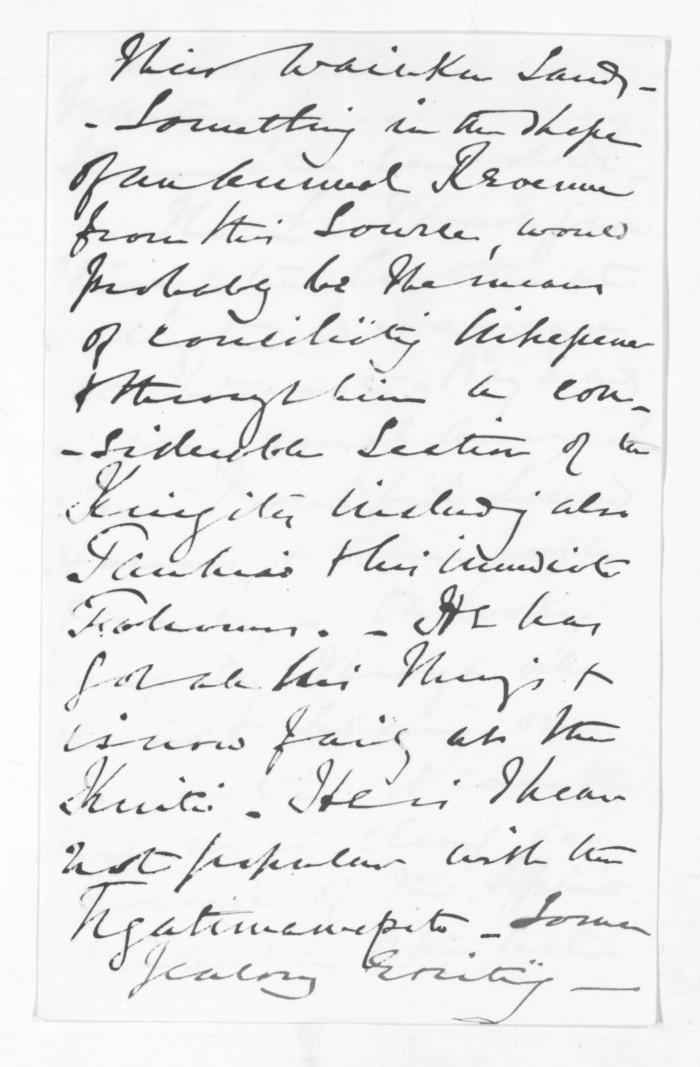 their Waikato Lands -
- Something in the shape
of an annual Revenue
from this Source, would
probably be the means
of conciliating
& through him a con-
- siderable Section of the
Kingites including also
Tawhiao & his immediate
- He has
got all his things &
is now fairly at the
Kuiti - He is I hear
not popular with the
Ngatimaniapoto - Some
jealousy existing -